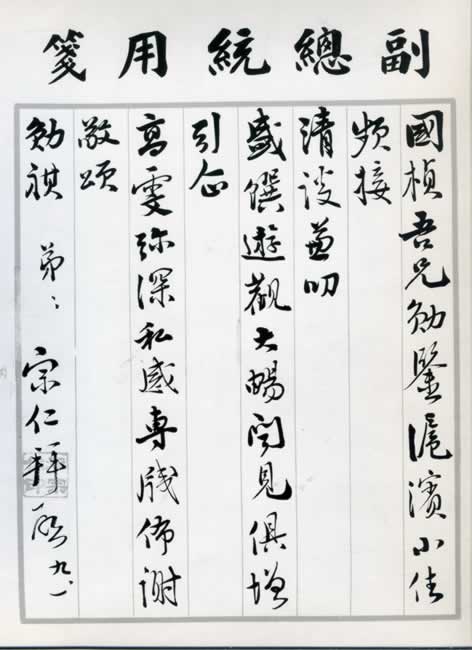 副總統用箋
國楨吾兄勛鑒滬濱小住
頻接
清談兼叨
盛饌遊觀大暢聞見俱增
引企
高雯弥深私感專牋佈謝
敬頌
勛祺 弟 宗仁拜啟 九.一